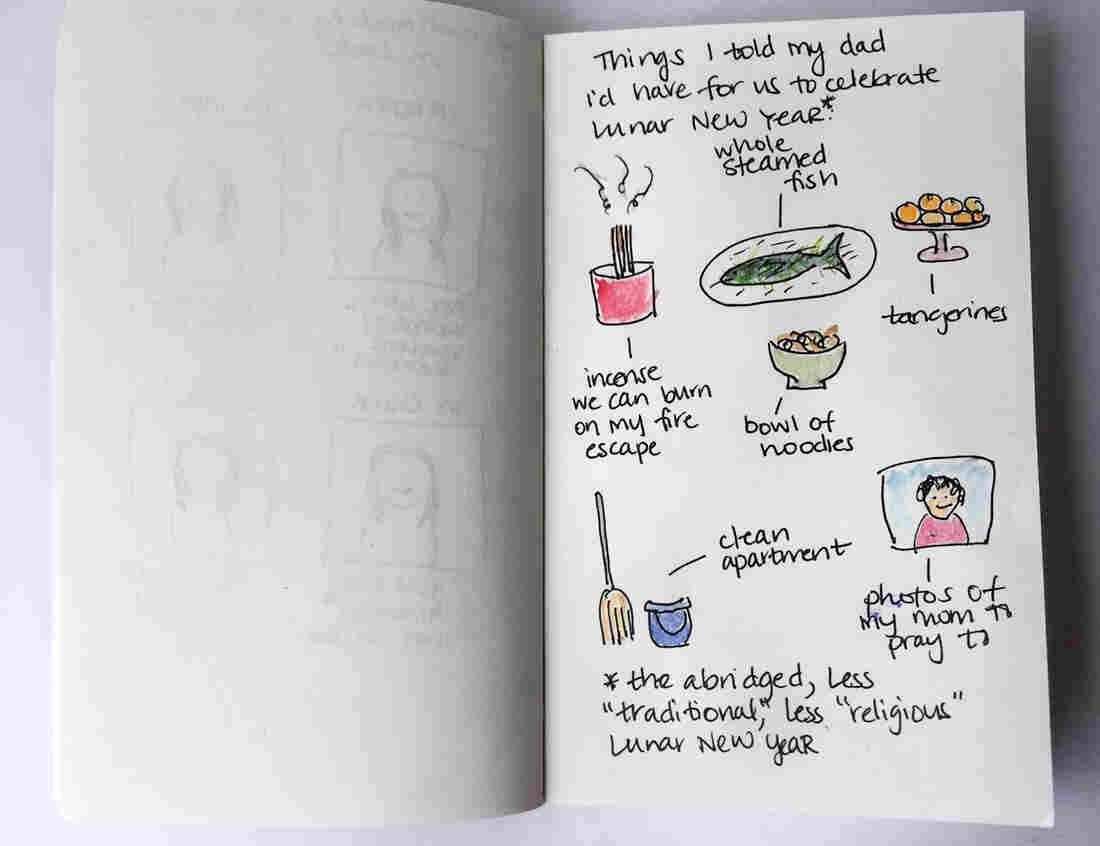 Things I told my dad
I'd have for us to celebrate
Lunar New Year*:
whole
steamed
fish
tangerines
incense
we can burn
on my fire
escape
bowl of
noodles
clean
apartment
photos of
my mom to
pray to
* the abridged, less
"traditional," less "religious"
Lunar New Year